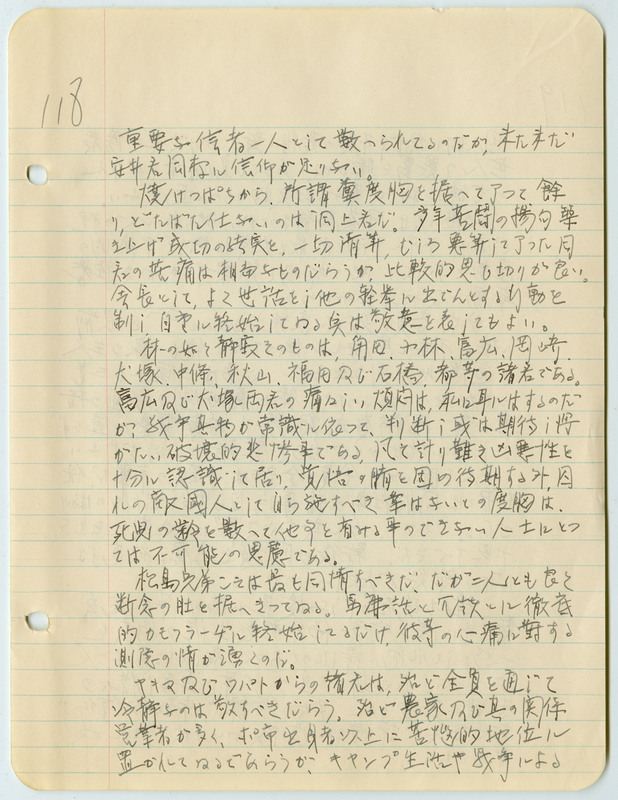 118
重要な信者一人として数へられてるのだが、未だ未だ
安井君同様に信仰が足りない。
焼けつぱちから、所謂糞度胸を据へて了つて餘
り、どたばた仕ないのは洞上君だ。少年苦闘の揚句築
き上げ成功の結実を、一切清算、むしろ悪算して了つた同
君の苦痛は相当なものだらうが、比較的思ひ切りが良い。
会長として、よく世話をし他の軽挙に出でんとする行動を
制し、自重に終始してゐる矣は敬意を表してもよい。
林の如く静寂そのものは、角田、小林、富広、岡崎、
犬塚、中條、秋山、福田及び石橋、都等の諸君である。
富広及び犬塚両君の痛ましい煩悶は、私も耳にはするのだ
が、戦争其物が常識に依つて、判断し或は期待し得
がたい破壊的悲惨事である、凡そ計り難き凶悪性を
十分に認識して居り、覚悟の臍を固め待期する外、囚
れの敵國人として自ら施すべき業はないとの度胸は、
死児の齢を数へて他事を省ける事のできない人士にとつ
ては不可能の思慮である。
松島兄弟こそは最も同情すべきだ、だが二人とも良く
断念の肚を据へきつてゐる。馬鹿話と冗談とに徹底
的カモフラーヂに終始してるだけ、彼等の心痛に対する
測隠の情が湧くのだ。
ヤキマ及びワパトからの諸君は、殆ど全員を通じて
冷静なのは敬すべきだらう。殆ど農家及び其の関係
営業者が多く、ポ市出身者以上に苦悩的地位に
置かれてゐるであらうが、キャンプ生活や戦争による